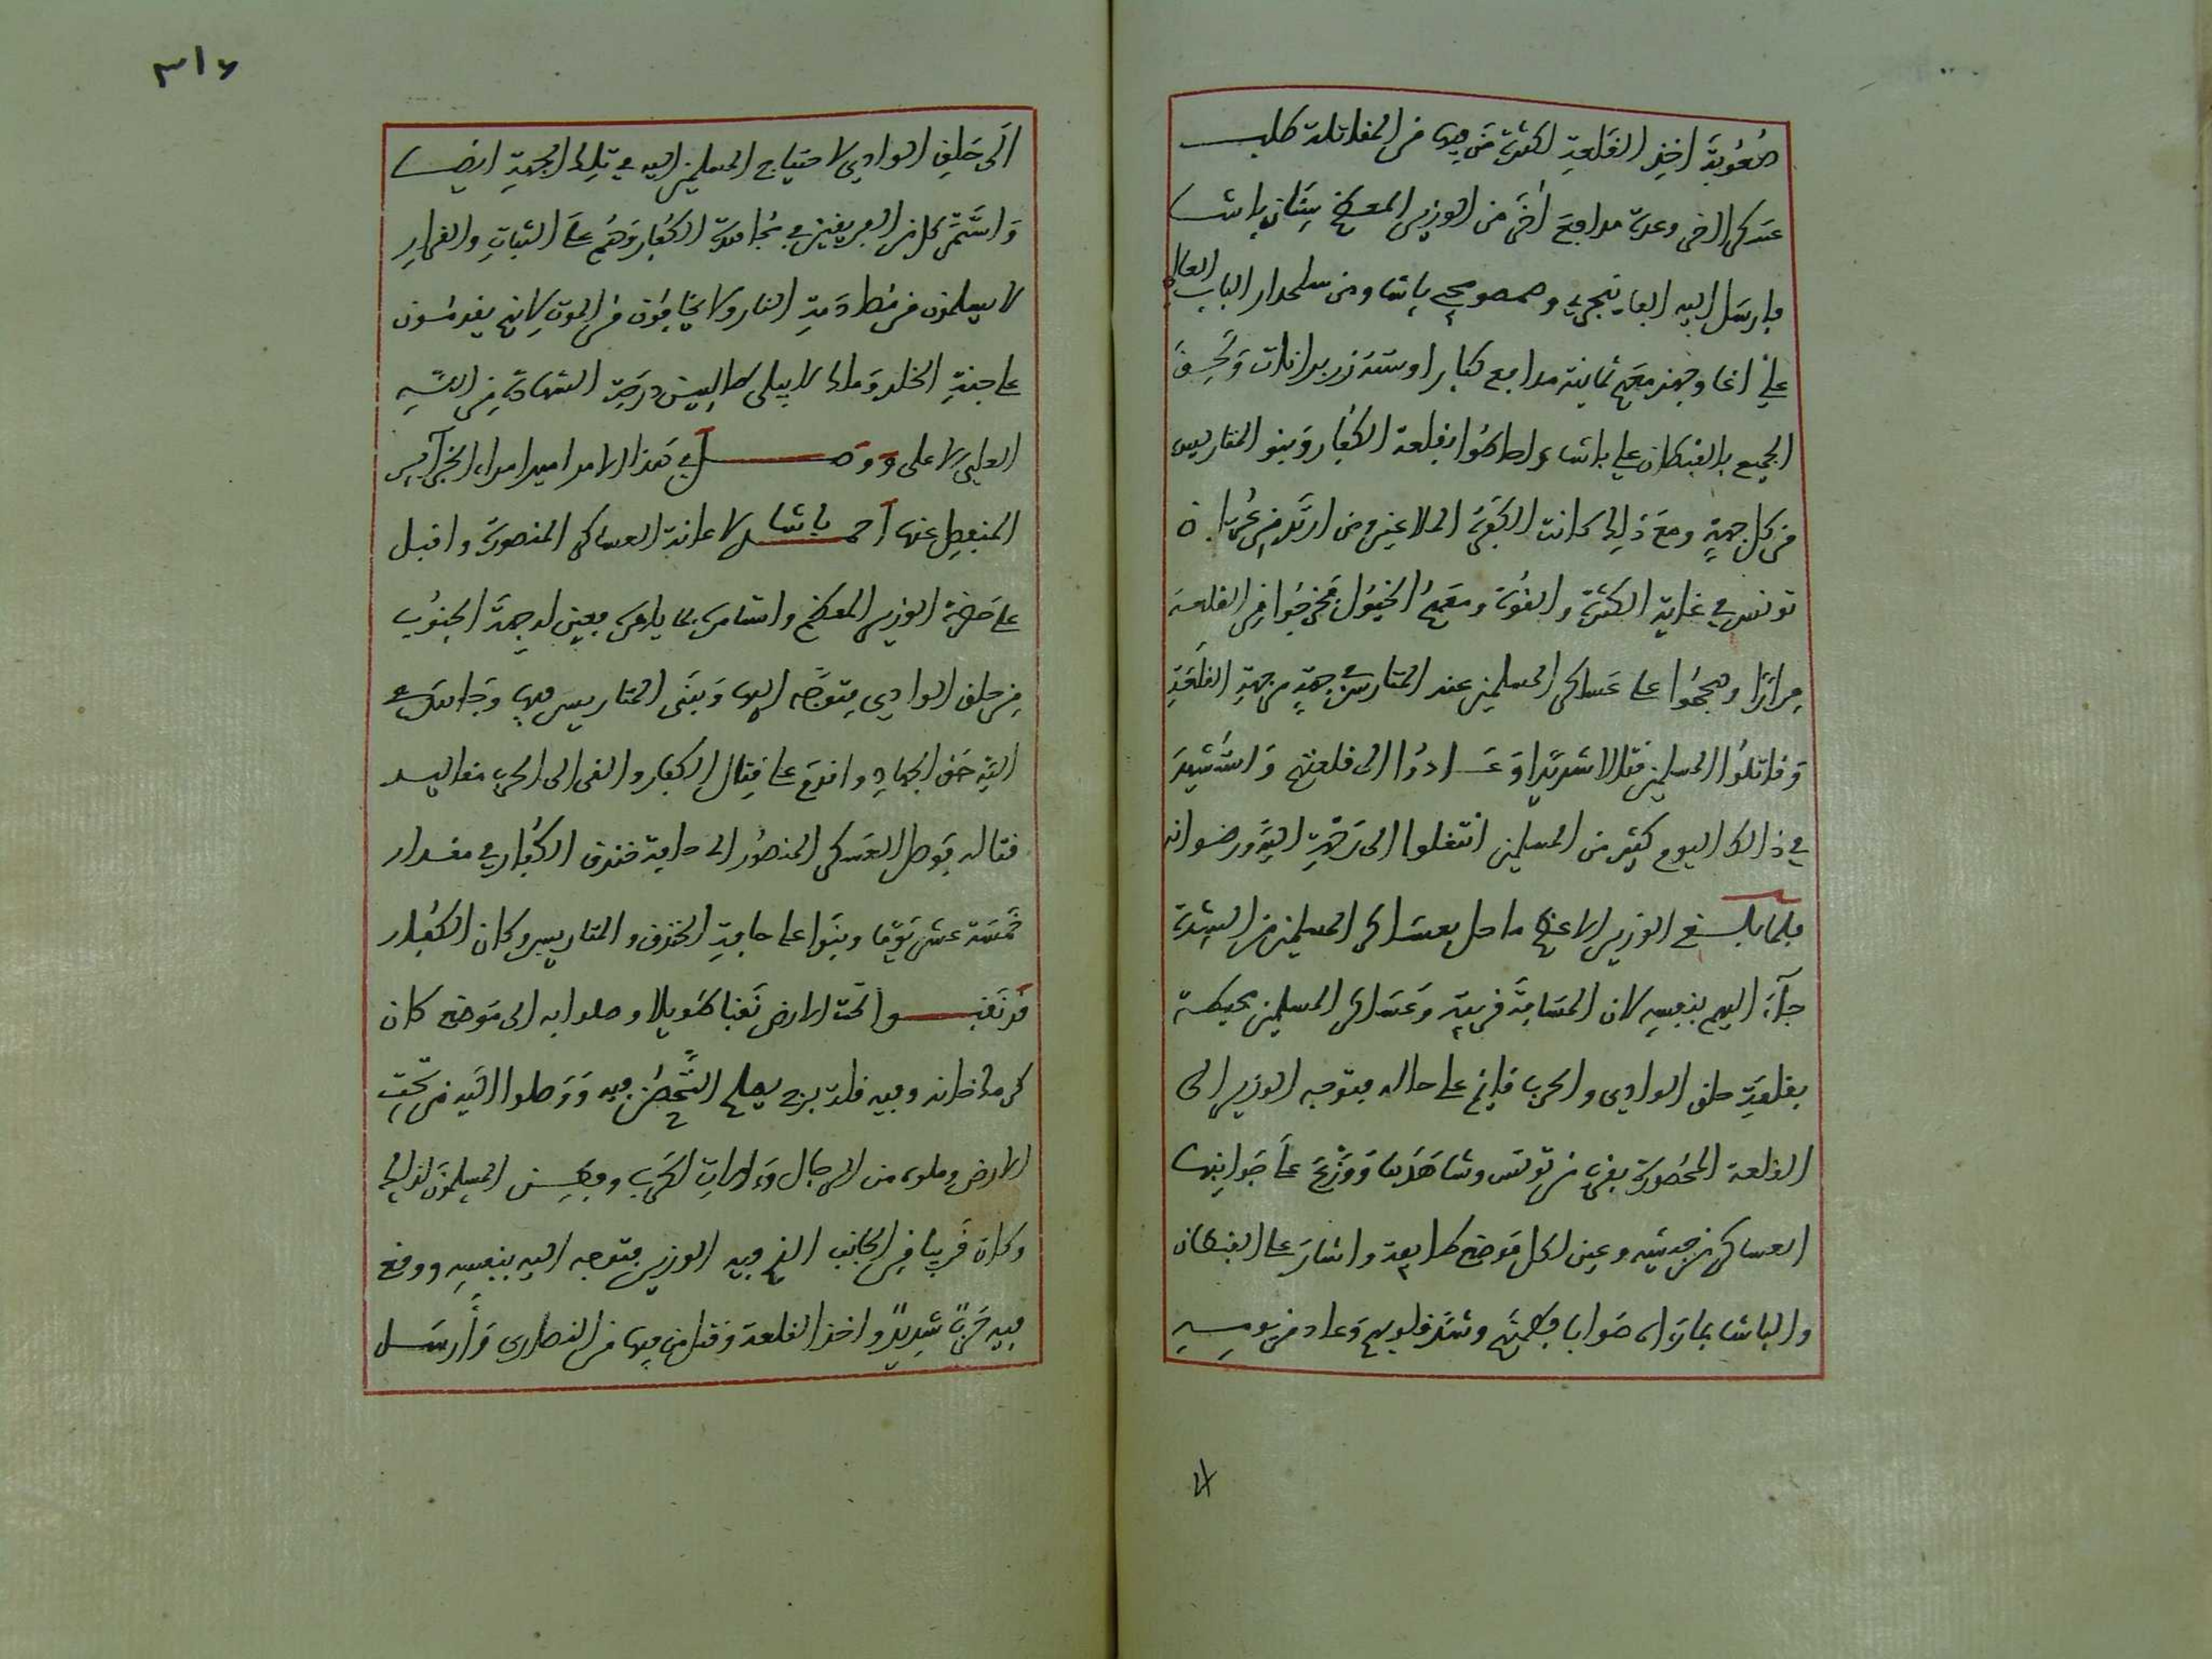 صُعُوبَةَ اخذِ القَلعةِ لكثرة مَن فيها من المقاتلة طلب
عَسكر اخر وعدة مدافعَ اُخَر من الوزير المعظم سِنَان باشا
فارسَل اليه القابنجي وصمصومجي باشا ومن سلحدار الباب العالي
علي اغا وجهز معهم ثمانية مدافع كبارا وستة زربزانات ولحق
الجميع بالقبطان علي باشا واحاطوا بقلعة الكفار وبنو المتاريس
من كل جهةٍ ومع ذلك كانت الكفرة الملاعين ومن ارتد من عربان
تونس في غاية الكثرة والقوة ومعهمُ الخيول فخرجوا من القلعة
مِرارًا وهجموا على عَساكر المسلمين عند المتارس من جهةٍ من جهةِ القلعَةِ
وقاتلُوا المسلمين قتالا شديدا وَعَادوُا الى قلعتهم وَاستُشهِدَ
في ذالك اليوم كثير من المسلمين انتقلوا الى رحمةِ اللهِ ورضوانه
فلما بلغ الوزير الاعظم ما حل بعساكر المسلمين من الشدة
جآءَ اليهم بنفسِهِ لان المَسَافةَ قريبة وَعَساكر المسلمين محيطة
بقلعةِ حلق الوادي والحرب قايم على حاله فتوجه الوزير الى
القلعة المحصورة بقرب من تونس وشاهَدَها وَوَزَّعَ علىَ جَوانِبها
العساكر من جديد وعين لكل مَوضع طايفة واشار على القبطان
والباشا بما رَاه صَوابا فطمنهم وشد قلوبهم وَعاد من يومِه
٣١٦
الَى حَلقِ الوادي لاحتياج المسلمين اليه في تلك الجهةِ ايضا
وَاستَمَّر كل من الفريقين في مُجاهدة الكفار وَهُم علىَ الثباتِ والقرارِ
لا يسلمون من مُطاردةِ النار ولا يخافُون من الموت لانهم يقدمُون
على جنةِ الخلد وَملك لا يبلى طالبين درَجة الشهادةِ من اللهِ
العليّ الاعلى وَوَصَل في هذا الامر امير امراء الجزآيرِ
المنفصل عنها احمد باشا لاعانة العساكر المنصورة واقبل
على حَضرة الوزير المعظم واستامره بما يامره فعين له جهَةَ الجنُوبِ
من حلق الوادي فتوَجَّه اليها وَبَنَى المتاريسَ فيها وَجَاهدَ في
اللهِ حَق الجهادِ واقدم على قتالِ الكفار والقى الى الحرب مقاليد
قتاله فوَصل العَسكر المنصُور الى حافة خندق الكُفارِ في مقدار
خَمسَة عشر يَومًا وبنَوا على حافةِ الخندق والمتاريس وكان الكُفار
قد نَقبوا تحت الارض نَقبا طويلا وصلوا به الى مَوضع كان
كرمة خانه وفيه قلة برج يصلح التَّحصُن فيه وَوَصلوا اليه من تحت
الارض وملوه من الرجال وَءالاتِ الحَرب وفطِن المسلمون لذلك
وكان قَريبا مِن الجانب الذي فيه الوزير فتوجه اليه بنفسه ووقع
فيه حَربٌ شديدٌ واخذ القلعة وَقتل من فيها من النصارى وَأَرسَل